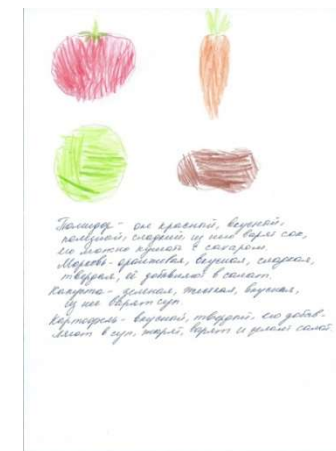 Помидор - он красный, вкусной,
полезной, сладкий, из него варят сок,
его можно кушать с сахаром.
Морковь - оранжевая, вкусная, сладкая,
твердая, её добавляют в салат.
Капуста - зеленая, вкусная,
из нее варят суп.
Картофель - вкусной, твердой, его добав-
ляют в суп, жарят, варят и делают салат.